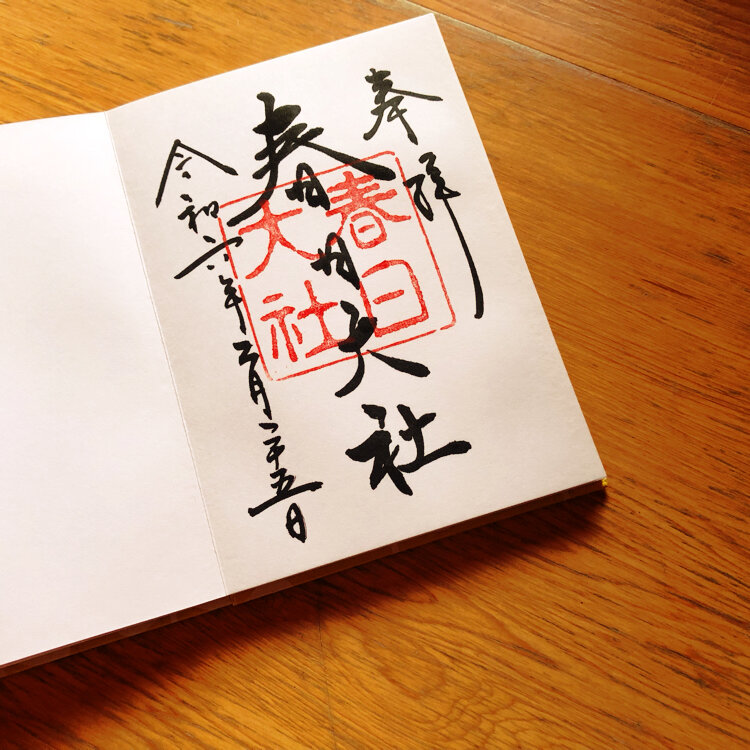 奉拝
春日大社
春日
大社
令和六年 月二十五日